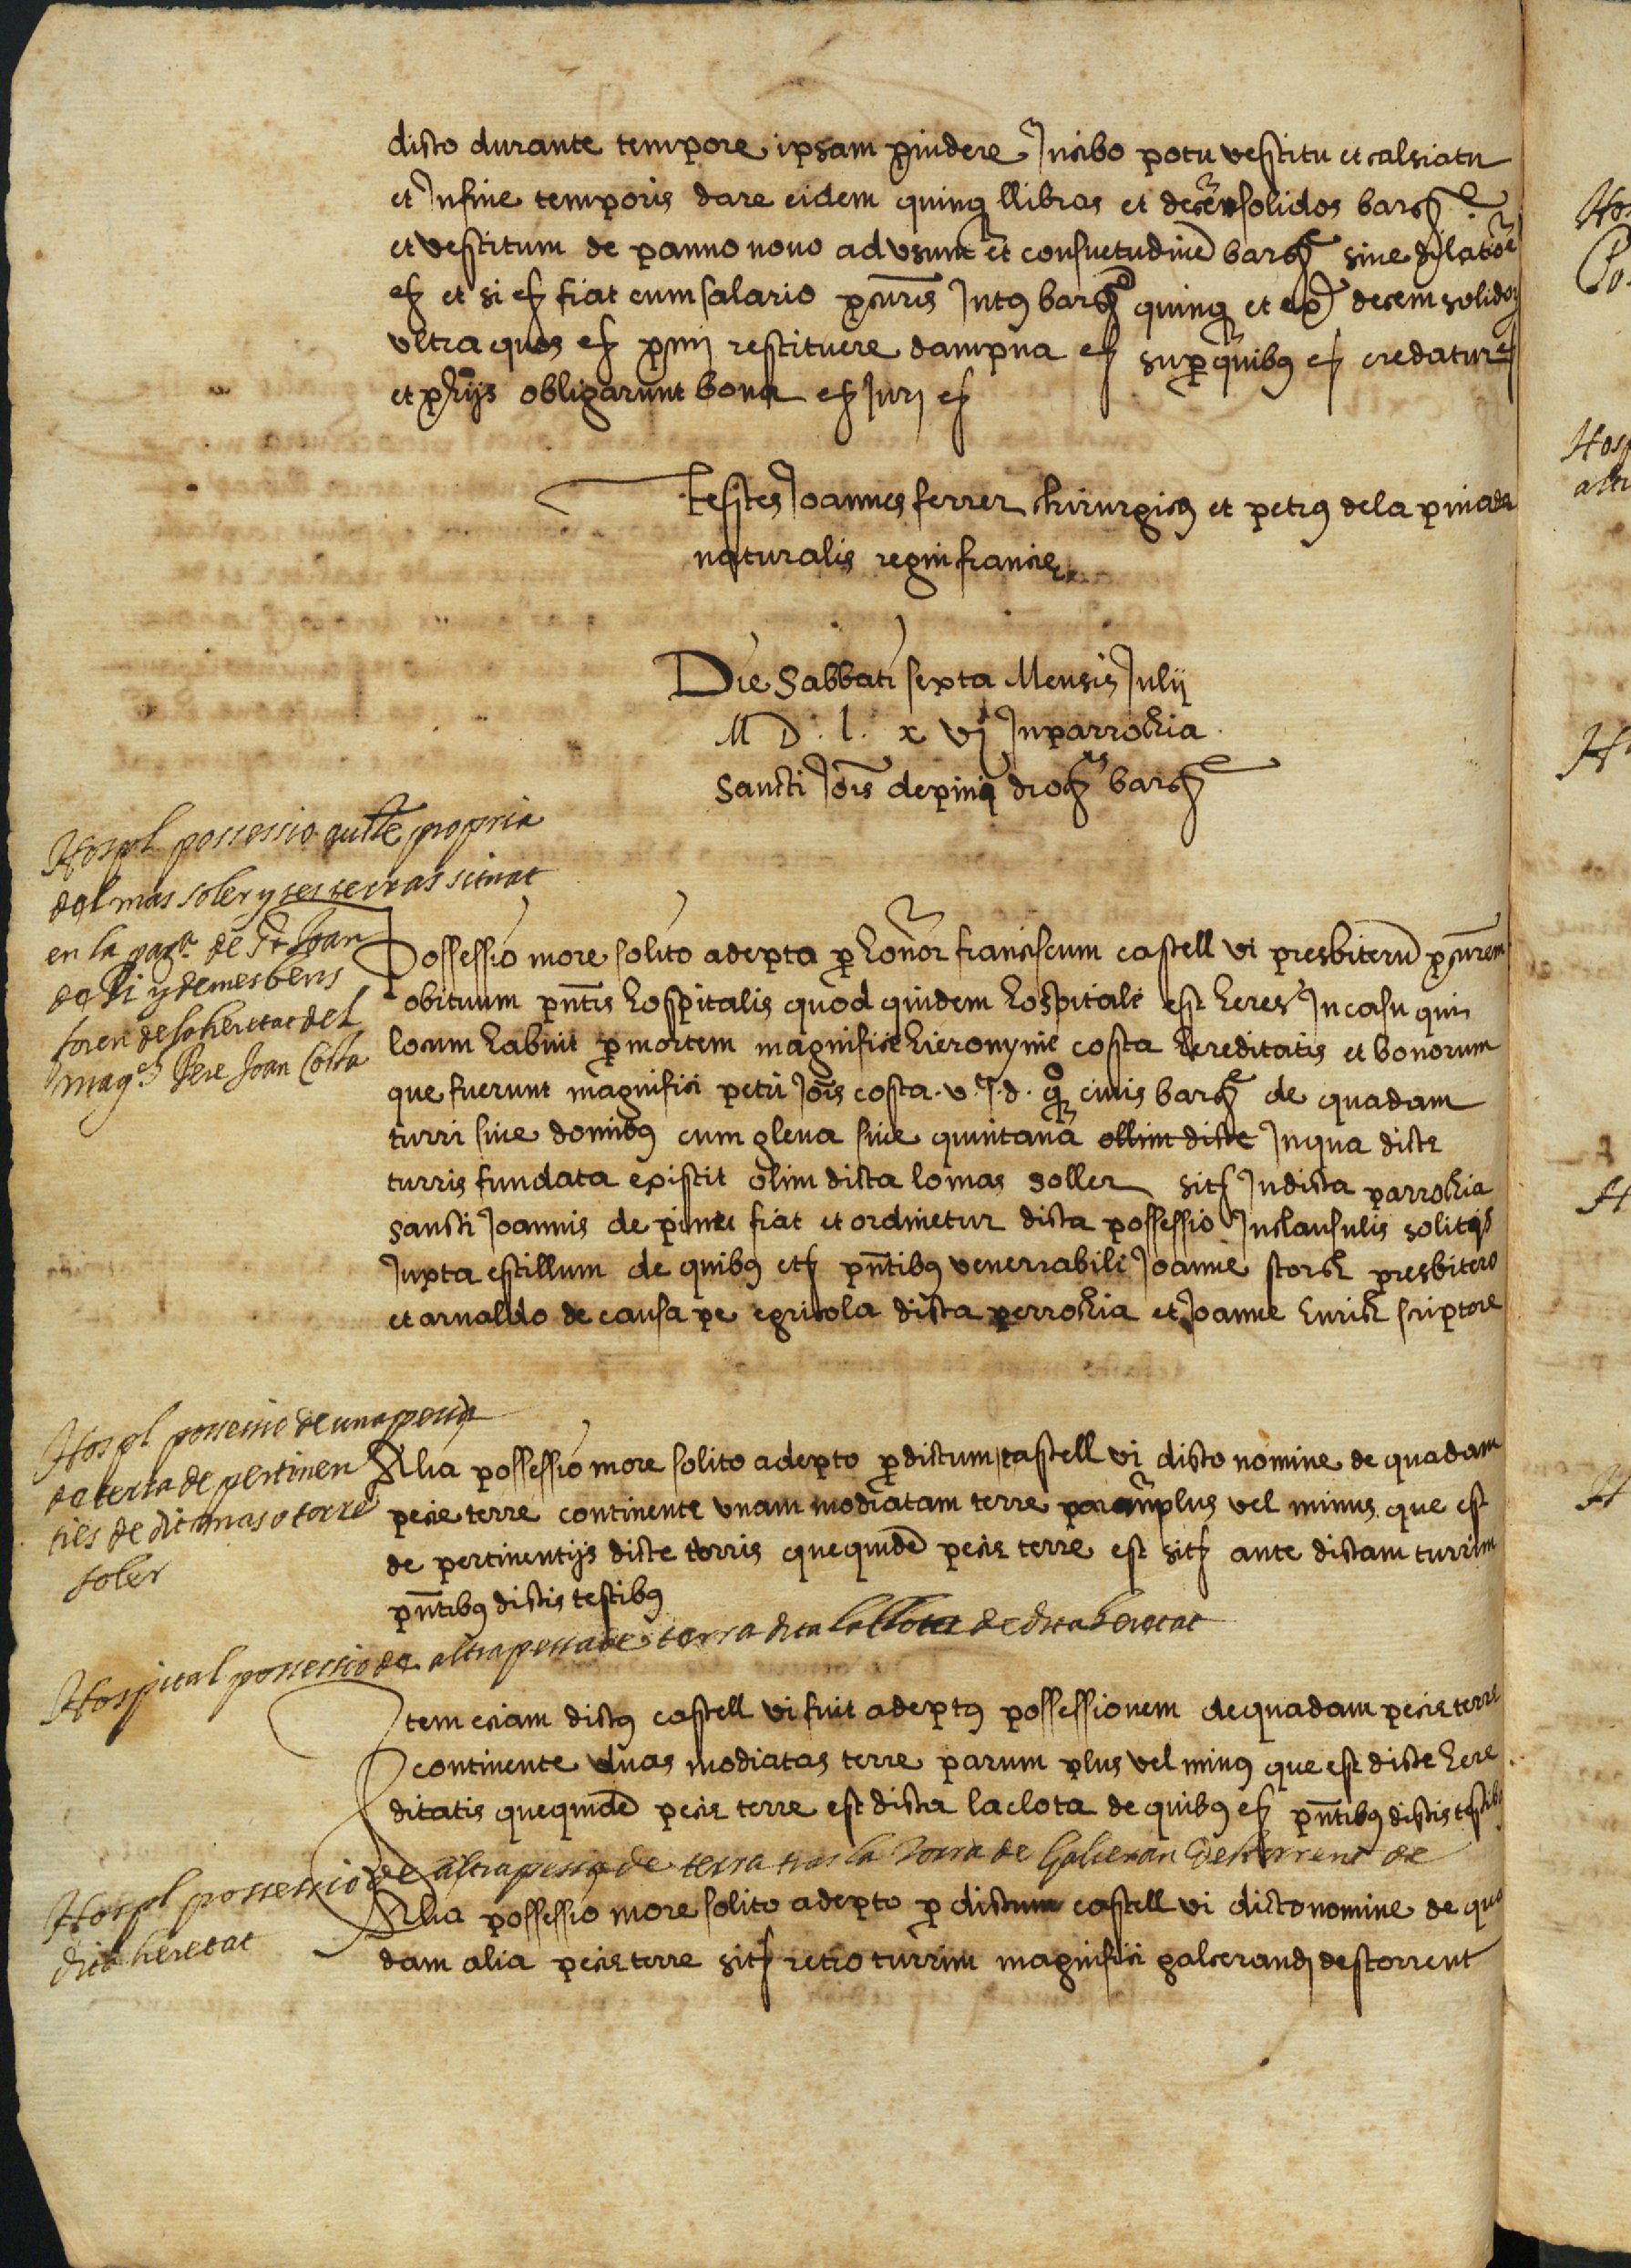 dicto durante tempore ipsam providere In cibo potu vestitu et calsiatu
et In fine temporis dare eidem quinq llibras et decem solidos barcne
et vestitum de panno novo ad usum et consuetudine barcne sine dilatione
etc et si etc fiat cum salario procuris Intus barcna quinq et ex decem solidos
ultra quos etc promi restituere dampna etc super quibus etc credatur etc
et pro hijs obligarunt bona etc Jurj etc
Testes Joannes ferrer chirurgicus et petrus de la
naturalis regni francie
Die Sabbati sexta Mensis Julij
M D. l. x vj In parrochia
Sancti Jois de pinu diocs barcne
Hospl possessio propria
del mas soler y ses terras situat
en la para de St Joan
de Pi y de mes bens
foren de la heretat del
magch Pere Joan Costa
Possessio more solito adepta p honor franciscum castell vi presbiterum procurem
obituum pntis hospitalis quod quidem hospitale est heres In casu qui
locum habuit p mortem magnifice hieronyme costa hereditatis et bonorum
que fuerunt magnifici petri Jois costa. v. J. d. qo civis barcne de quadam
turri sive domibus cum gleva sive quintana ollim dicte In qua dicta
turris fundata existit olim dicta lo mas soller sitz In dicta parrochia
Sancti Joannis de pinu fiat et ordinetur dicta possessio In clausulis solitis
Juxta estillum de quibus etc pntibus venerrabili Joanne storch presbitero
et arnaldo de causa pe egricola dicta perrochia et Joanne hurich scriptore
Hospl possessio de una pessa
de terra de pertinen
ties de dit mas o torre
soler
Alia possessio more solito adepto p dictum castell vi dicto nomine de quadam
pecie terre continente unam modiatam terre parum plus vel minus que est
de pertinentijs dicte torris que quidem pecie terre est sitz ante dictam turrim
pntibus dictis testibus
Hospital possessio de altra pessa de terra dita la Clota de dita heretat
Item eciam dictus castell vi fuit adeptus possessionem de quadam pecie terre
continente duas modiatas terre parum plus vel minus que est dicte here
ditatis que quidem pecie terre est dicta la clota de quibus etc pntibus dictis testibus
Hospl possessio de altra pessa de terra tras la Torra de Galceran Destorrent de
dita heretat
Alia possessio more solito adepto p dictum castell vi dicto nomine de qua
dam alia pecie terre sitz retro turrim magnifici galcerandj destorrent